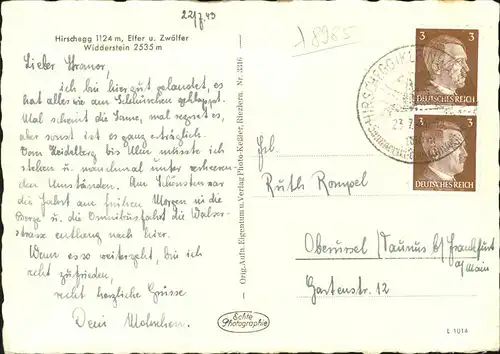 22/7.43
18985
Hirschegg 1124 m, Elfer u. Zwölfer
Widderstein 2535 m
Lieber
ich bin hier gut gelandet, es
hat alles wie am Schnürchen geklappt.
Mal scheint die Sonne, mal regnet es,
aber sonst ist es ganz erträglich.
Von Heidelberg bis Ulm musste ich
stehen u. manchmal unter
den Umständen. Am Schönsten war
die Fahrt am frühen Morgen in die
Berge u. die Omnibusfahrt die Walser-
strasse entlang nach hier.
Wenn es so weitergeht, bin ich
zufrieden,
recht herzliche Grüsse
Dein
Orig. Aufn. Eigentum u. Verlag Photo-Keßler, Riezlern. Nr. 3316
Echte
Photographie
3
DEUTSCHES REICH
3
DEUTSCHES REICH
HIRSCHEGG
23.7.
Frl.
Ruth Rompel
Oberursel (Taunus b/ Frankfurt
a/Main
Gartenstr. 12
L 1014